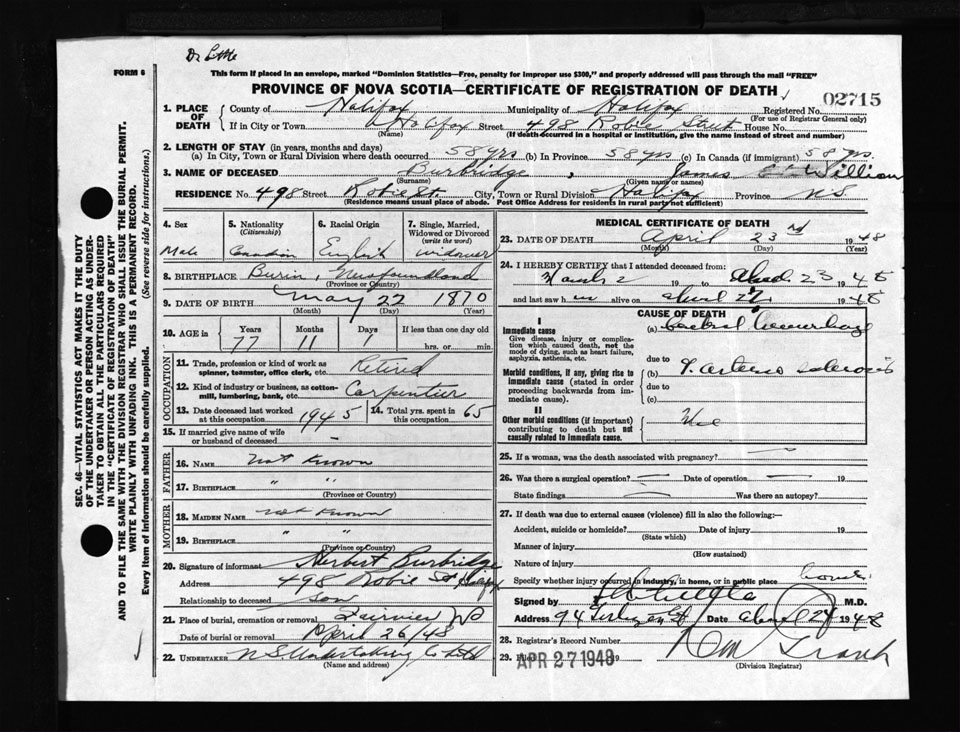 Dr Little
FORM 6
This form if placed in an envelope, marked "Dominion Statistics—Free, penalty for improper use $300," and properly addressed will pass through the mail "FREE"
PROVINCE OF NOVA SCOTIA—CERTIFICATE OF REGISTRATION OF DEATH
02715
1. PLACE OF DEATH County of Halifax Municipality of Halifax Registered No.
(For use of Registrar General only)
If in City or Town Halifax Street 498 Robie Street House No.
(Name) (If death occurred in a hospital or institution, give the name instead of street and number)
2. LENGTH OF STAY (in years, months and days)
(a) In City, Town or Rural Division where death occurred 58 yrs (b) In Province 58 yrs (c) In Canada (if immigrant) 58 yrs.
3. NAME OF DECEASED Burbridge, James William
(Surname) (Given name or names)
RESIDENCE No. 498 Street Robie St. City, Town or Rural Division Halifax Province N.S.
(Residence means usual place of abode. Post Office Address for residents in rural parts not sufficient)
4. Sex 5. Nationality (Citizenship) 6. Racial Origin 7. Single, Married, Widowed or Divorced (write the word)
Male Canadian English widower
8. BIRTHPLACE Burin, Newfoundland
(Province or Country)
9. DATE OF BIRTH May 22 1870
(Month) (Day) (Year)
10. AGE in Years Months Days If less than one day old
77 11 1 hrs. or min.
OCCUPATION
11. Trade, profession or kind of work as spinner, teamster, office clerk, etc. Retired
12. Kind of industry or business, as cotton-mill, lumbering, bank, etc. Carpenter
13. Date deceased last worked at this occupation 1945 14. Total yrs. spent in this occupation 65
15. If married give name of wife or husband of deceased -
FATHER
16. NAME not known
17. BIRTHPLACE " "
(Province or Country)
MOTHER
18. MAIDEN NAME not known
19. BIRTHPLACE " "
(Province or Country)
20. Signature of informant Herbert Burbridge
Address 498 Robie St Halifax
Relationship to deceased son
21. Place of burial, cremation or removal Fairview
Date of burial or removal April 26/48
22. UNDERTAKER N S Undertaking Co Ltd
(Name and address)
MEDICAL CERTIFICATE OF DEATH
23. DATE OF DEATH April 23rd 1948
(Month) (Day) (Year)
24. I HEREBY CERTIFY that I attended deceased from:
March 2 19 to April 23 1948
and last saw him alive on April 22 1948
CAUSE OF DEATH
I
Immediate cause (a) Cerebral hemorrhage
Give disease, injury or complication which caused death, not the mode of dying, such as heart failure, asphyxia, asthenia, etc.
due to
Morbid conditions, if any, giving rise to immediate cause (stated in order proceeding backwards from immediate cause). (b) arterio sclerosis
due to
(c)
II
Other morbid conditions (if important) contributing to death but not causally related to immediate cause.
25. If a woman, was the death associated with pregnancy? —
26. Was there a surgical operation? — Date of operation — 19
State findings — Was there an autopsy?
27. If death was due to external causes (violence) fill in also the following:—
Accident, suicide or homicide? Date of injury 19
(State which)
Manner of injury
(How sustained)
Nature of injury
Specify whether injury occurred in industry, in home, or in public place home
Signed by M.D.
Address 94 Date April 24 1948
28. Registrar's Record Number
29. APR 27 1948 19
(Division Registrar)
SEC. 46—VITAL STATISTICS ACT MAKES IT THE DUTY
OF THE UNDERTAKER OR PERSON ACTING AS UNDER-
TAKER TO OBTAIN ALL THE PARTICULARS REQUIRED
IN THE "CERTIFICATE OF REGISTRATION OF DEATH"
AND TO FILE THE SAME WITH THE DIVISION REGISTRAR WHO SHALL ISSUE THE BURIAL PERMIT.
WRITE PLAINLY WITH UNFADING INK. THIS IS A PERMANENT RECORD.
Every item of information should be carefully supplied. (See reverse side for instructions.)